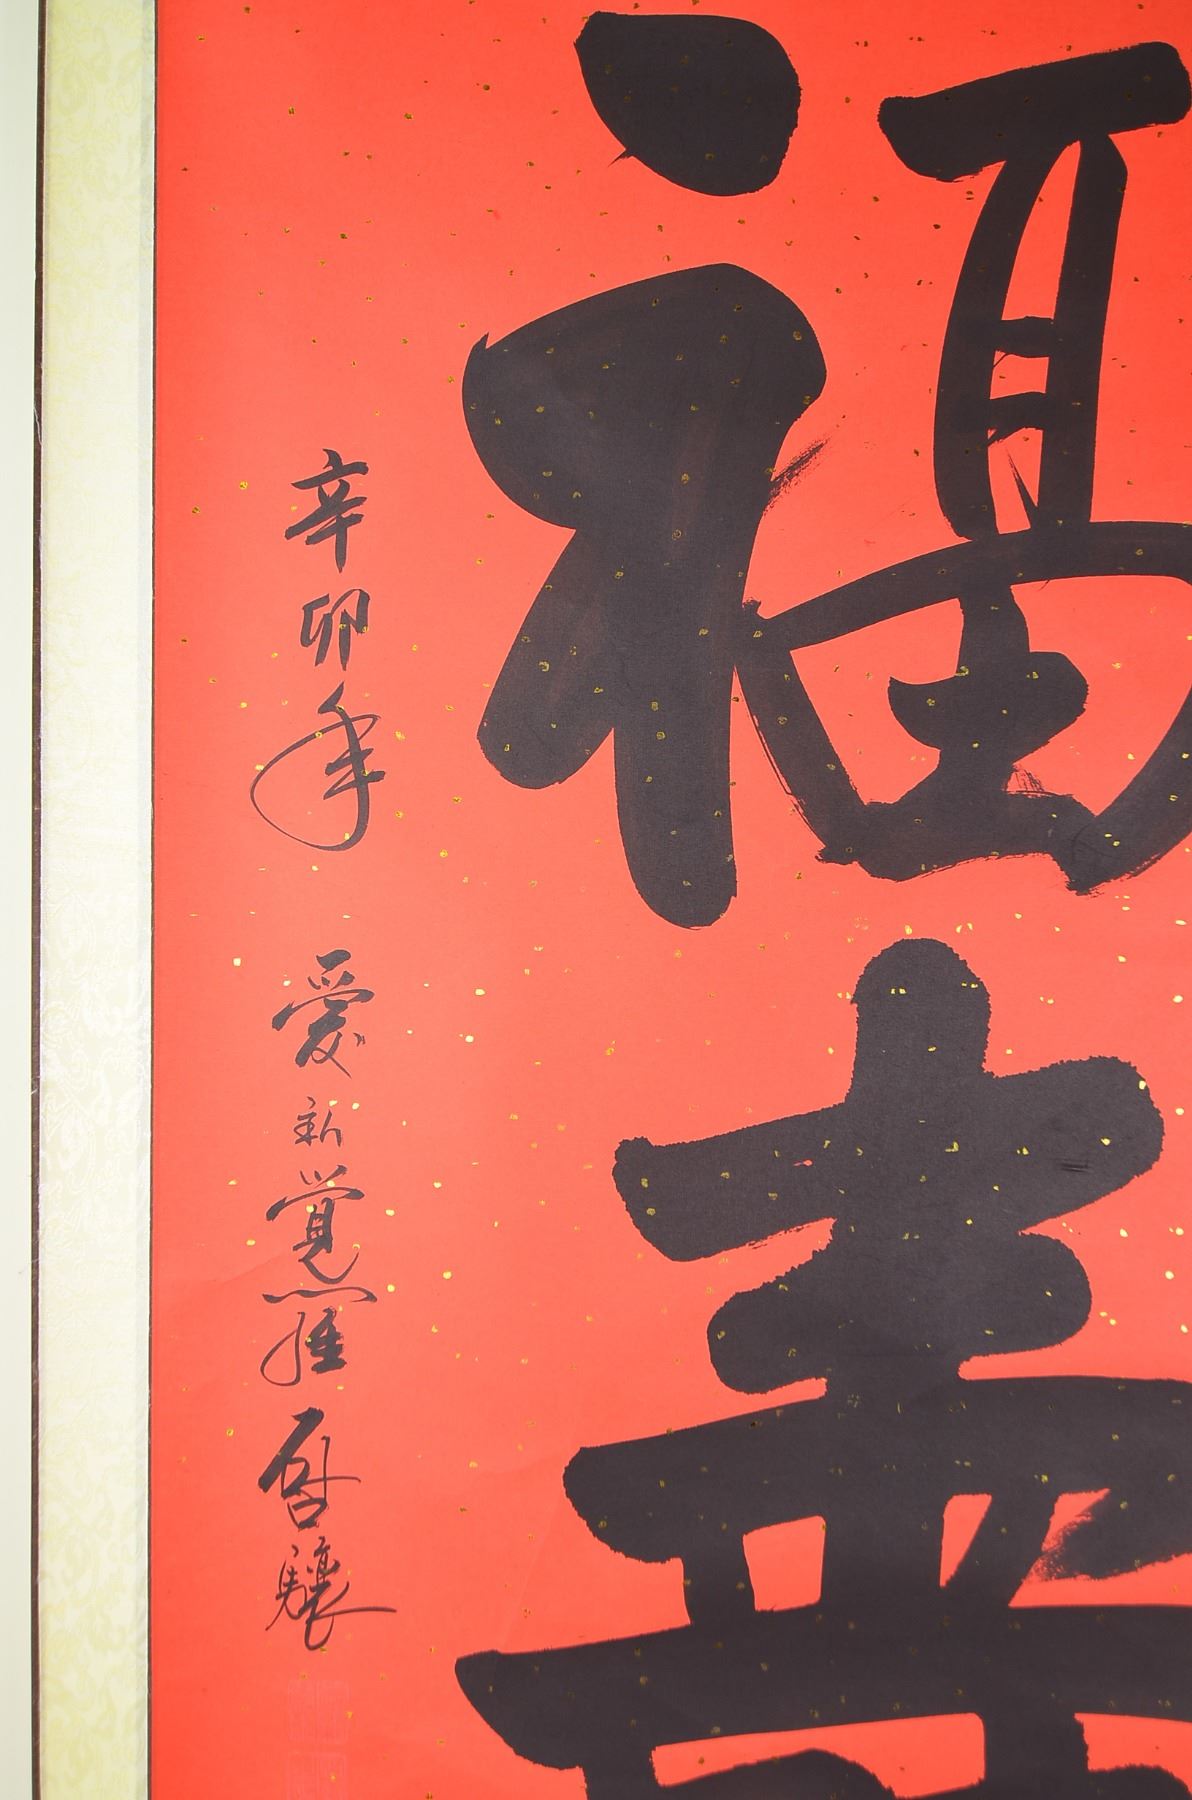 福壽
辛卯年 愛新覺羅 啓驤